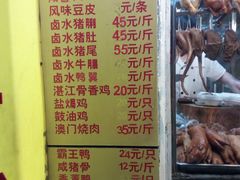 风味豆皮 元/条
卤水猪脷 45元/斤
卤水猪肚 45元/斤
卤水猪尾 55元/斤
卤水牛腩 元/斤
卤水鸭翼 元/斤
湛江骨香鸡 20元/斤
盐焗鸡 元/只
豉油鸡 元/只
澳门烧肉 35元/斤
霸王鸭 24元/只
咸猪骨 12元/斤